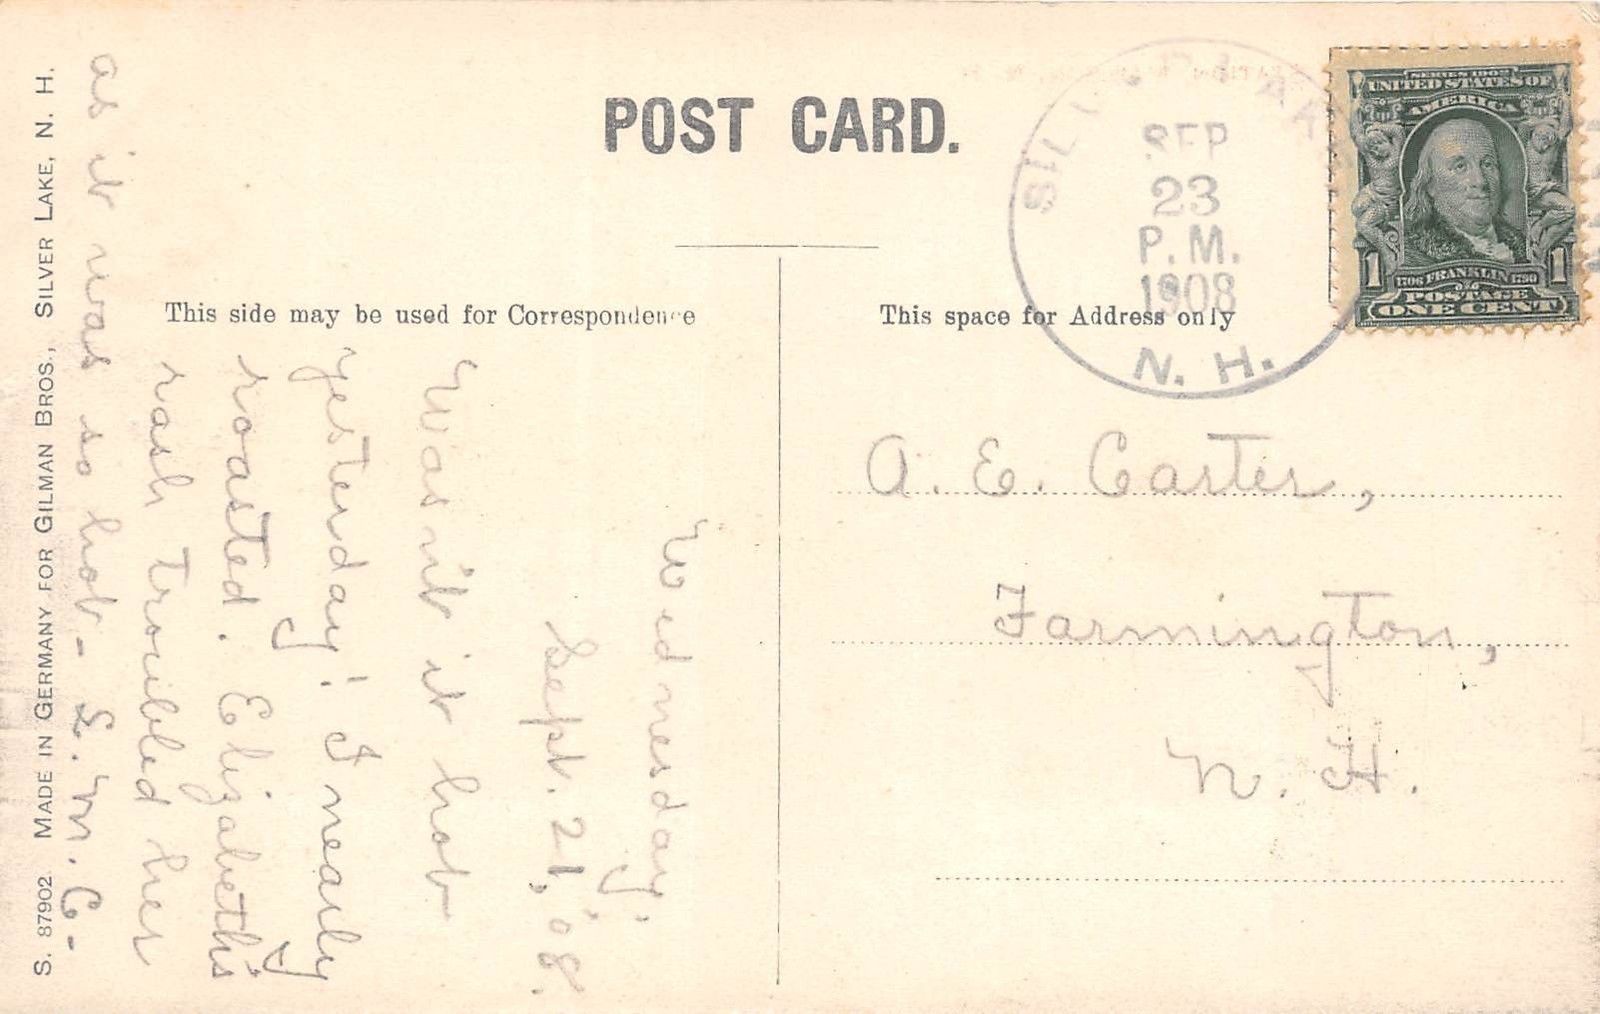 POST CARD.
SILVER LAKE
SEP
23
P. M.
1908
N. H.
SERIES 1902
UNITED STATES OF
AMERICA
1706 FRANKLIN 1790
1 1
POSTAGE
ONE CENT
This side may be used for Correspondence
This space for Address only
A. E. Carter,
Farmington,
N. H.
Wednesday,
Sept. 21, '08.
Wasn't it hot
yesterday! I nearly
roasted. Elizabeth's
rash troubled her
as it was so hot - L. M. C. -
S. 87902 MADE IN GERMANY FOR GILMAN BROS., SILVER LAKE, N. H.